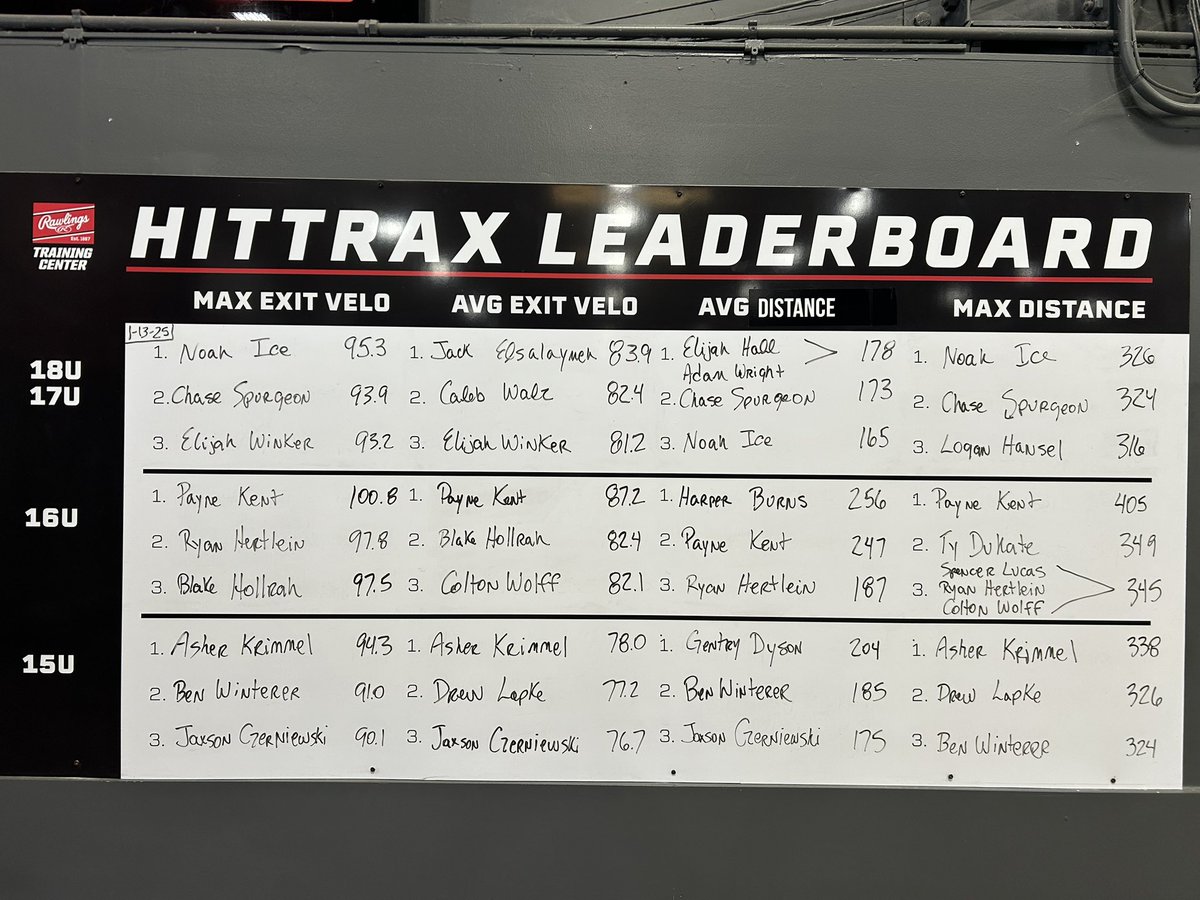 Rawlings
Est. 1887
TRAINING
CENTER
HITTRAX LEADERBOARD
MAX EXIT VELO AVG EXIT VELO AVG DISTANCE MAX DISTANCE
1-13-25
18U
17U
1. Noah Ice 95.3 1. Jack Elsalaymeh 83.9 1. Elijah Hall Adam Wright > 178 1. Noah Ice 326
2. Chase Spurgeon 93.9 2. Caleb Walz 82.4 2. Chase Spurgeon 173 2. Chase Spurgeon 324
3. Elijah Winker 93.2 3. Elijah Winker 81.2 3. Noah Ice 165 3. Logan Hansel 316
16U
1. Payne Kent 100.8 1. Payne Kent 87.2 1. Harper Burns 256 1. Payne Kent 405
2. Ryan Hertlein 97.8 2. Blake Hollrah 82.4 2. Payne Kent 247 2. Ty DuHate 349
3. Blake Hollrah 97.5 3. Colton Wolff 82.1 3. Ryan Hertlein 187 3. Spencer Lucas Ryan Hertlein Colton Wolff > 345
15U
1. Asher Krimmel 94.3 1. Asher Krimmel 78.0 1. Gentry Dyson 204 1. Asher Krimmel 338
2. Ben Winterer 91.0 2. Drew Lapke 77.2 2. Ben Winterer 185 2. Drew Lapke 326
3. Jaxson Czerniewski 90.1 3. Jaxson Czerniewski 76.7 3. Jaxson Czerniewski 175 3. Ben Winterer 324